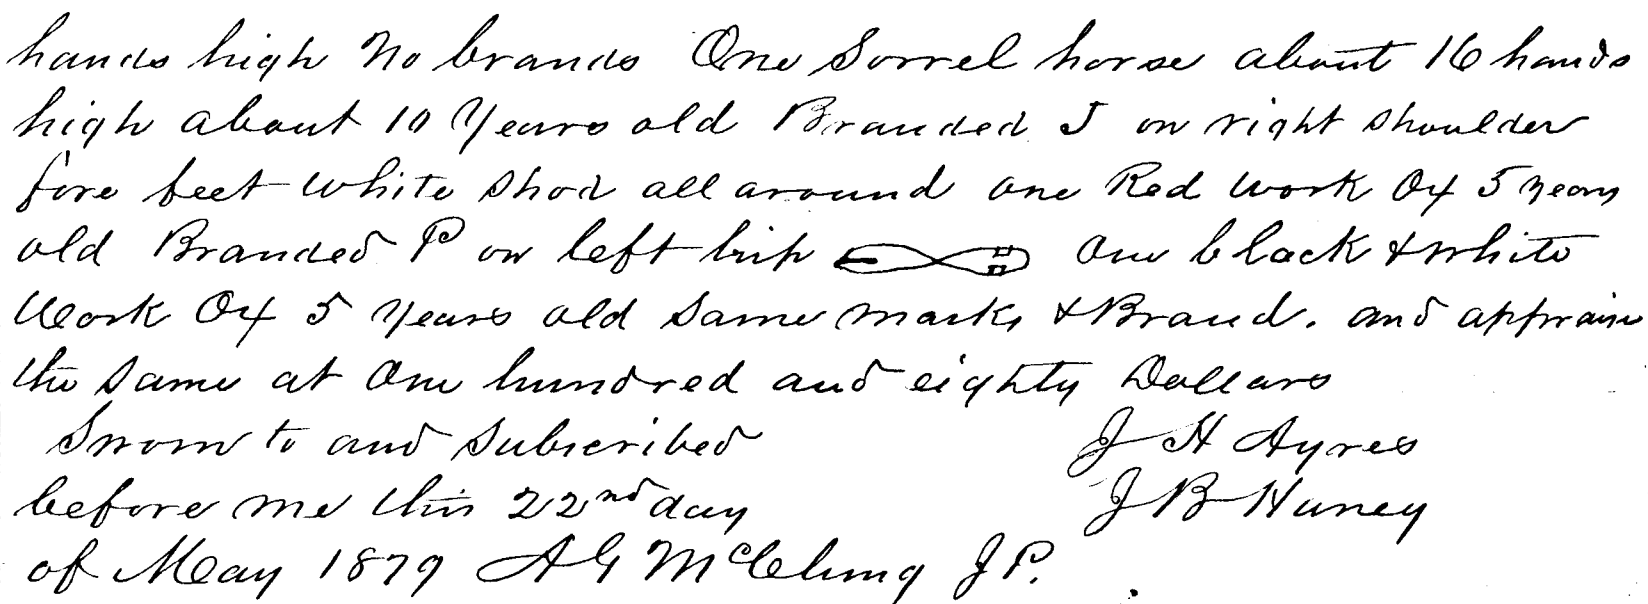 hands high No brands One Sorrel horse about 16 hands
high about 10 Years old Branded J on right shoulder
fore feet white shod all around one Red work Ox 5 years
old Branded P on left hip One black & white
Work Ox 5 Years old same marks & Brand. and appraise
the same at One hundred and eighty Dollars
Sworn to and subscribed J H Ayres
before me this 22nd day J B Haney
of May 1879 A G McClung J P.